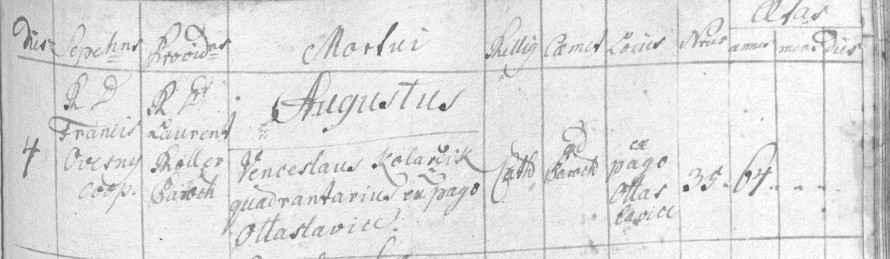 Dies Sepeliens Providens Mortui Rellig Cæmet Locus Nrus Ætas
annus mens Dies
Augustus
4 R D Francis Ovesny Coop.
R D Laurent Paroch
Venceslaus Kolarčik
quadrantarius ex pago
Ottaslavice.
Cath
ad Paroch
ex pago Ottaslavice
35. 64.